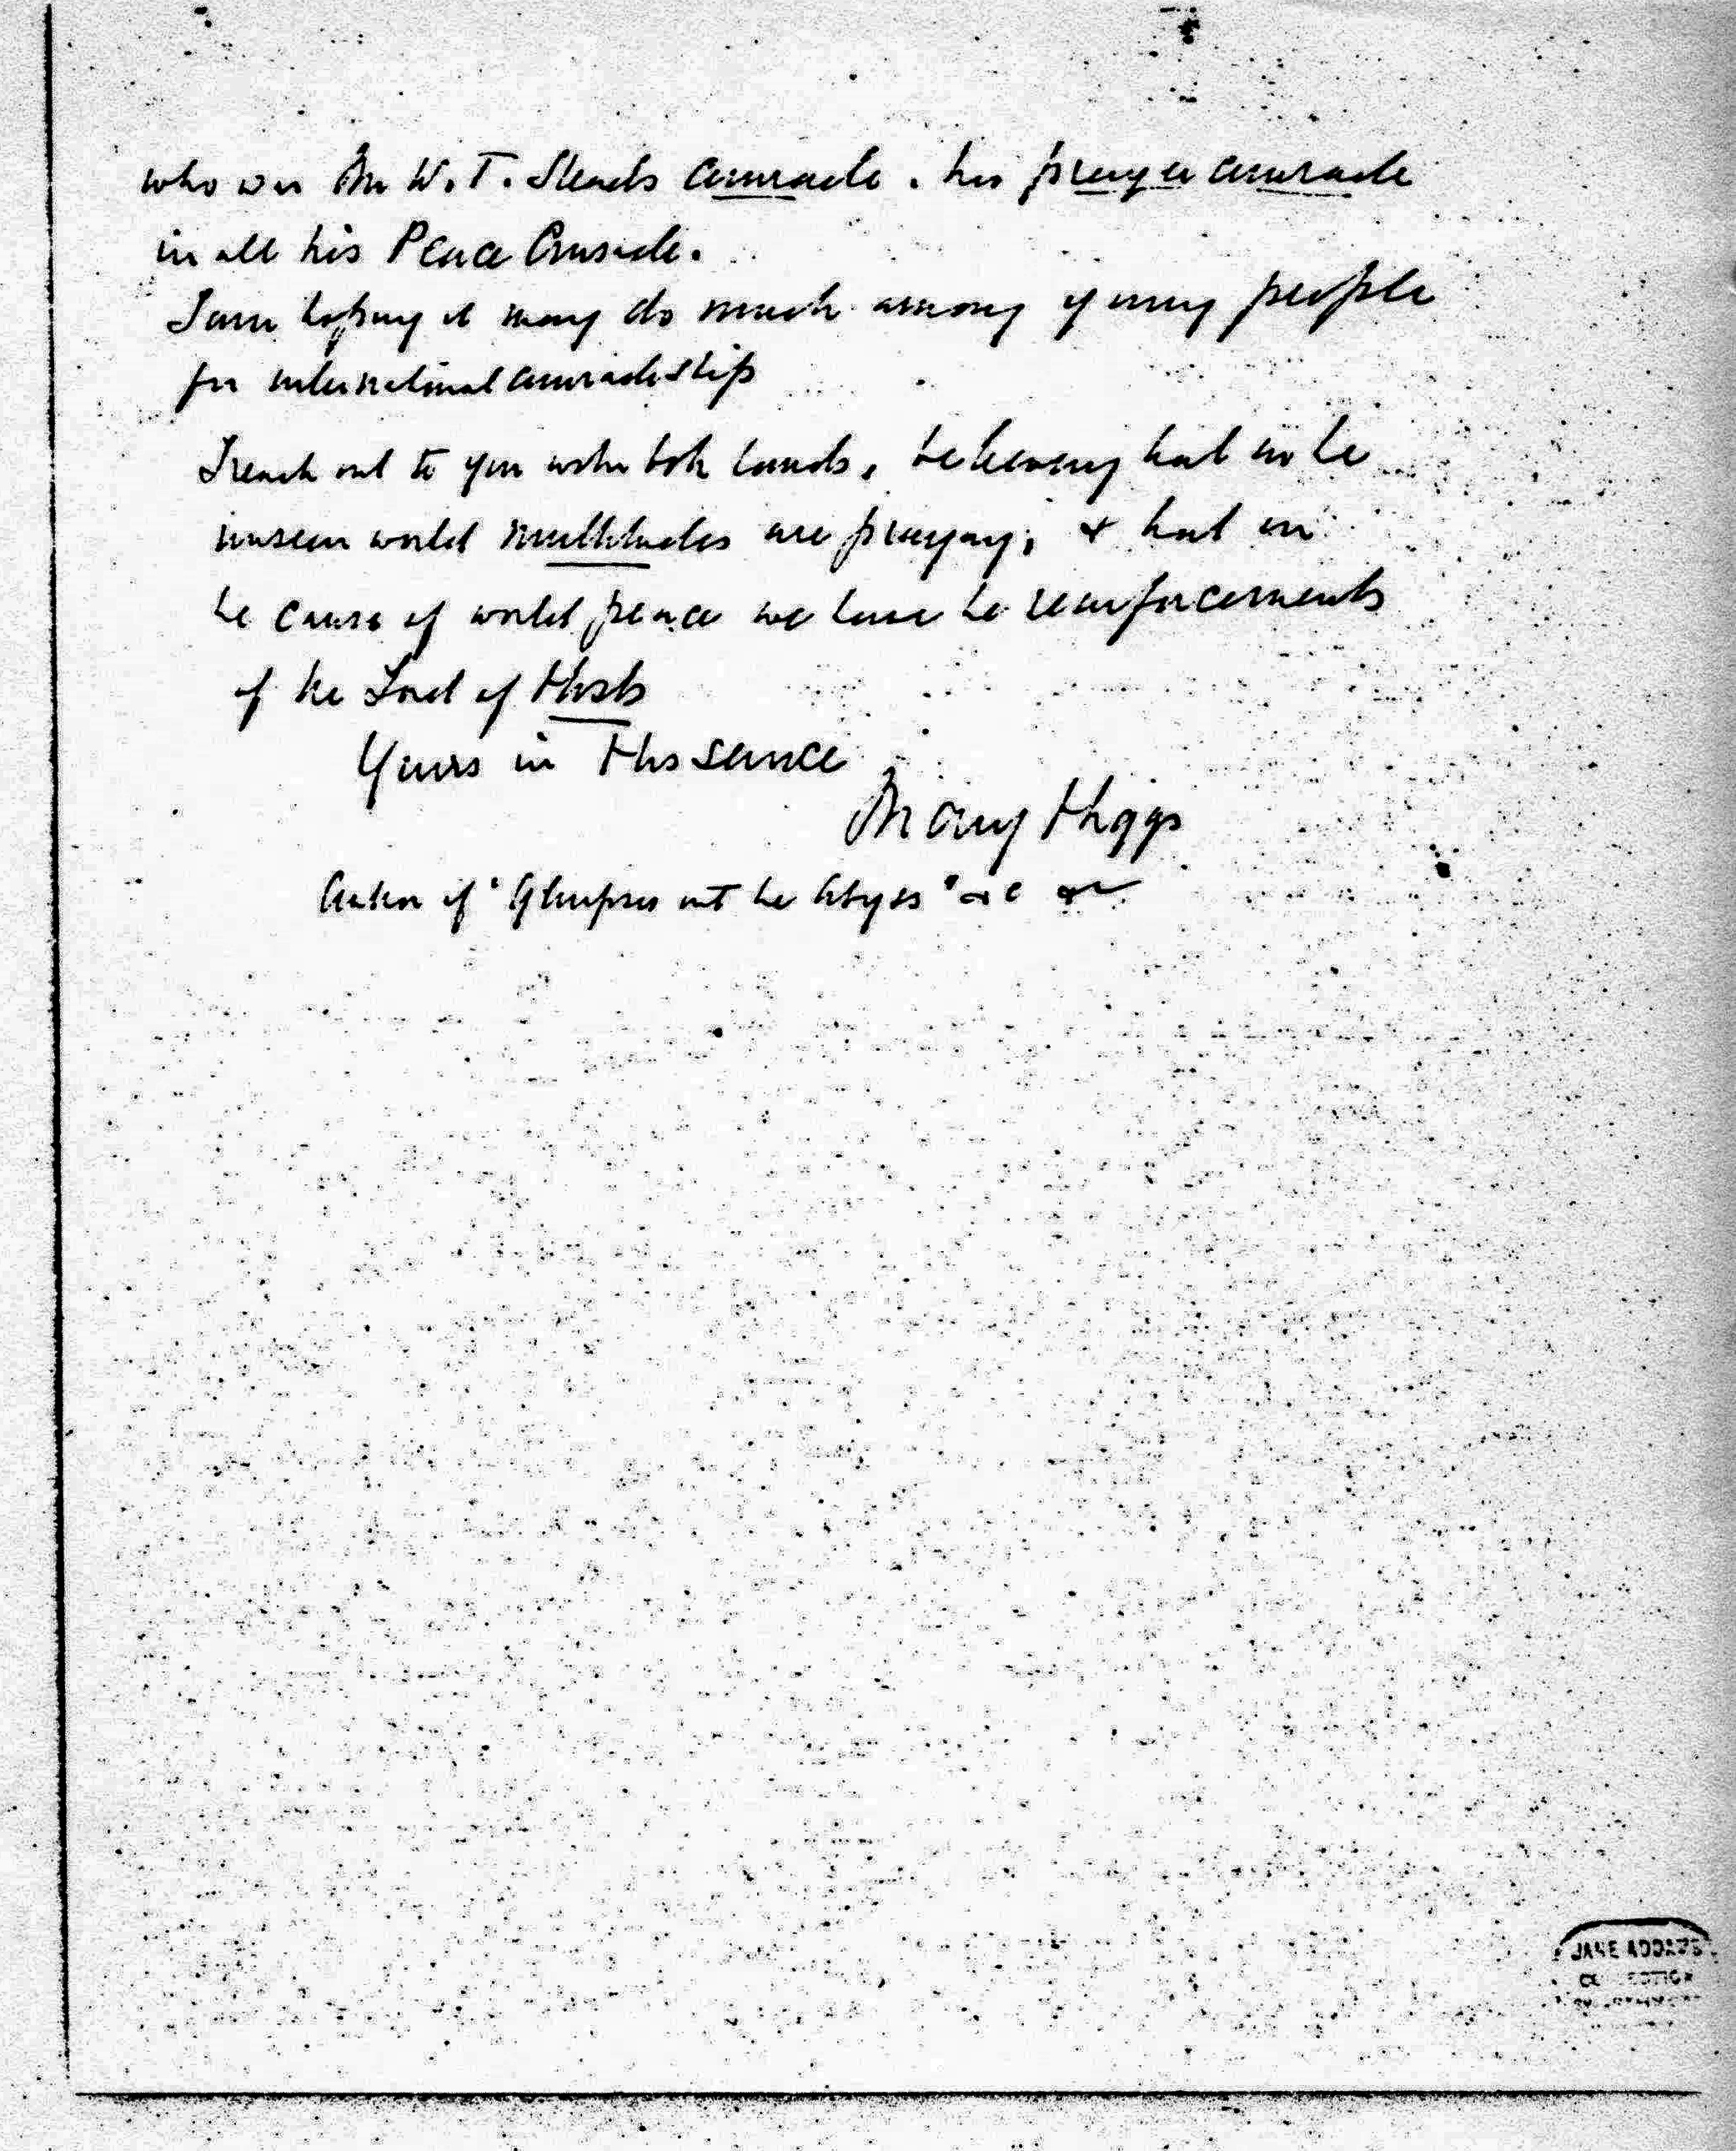 who was Mr W. T. Steads comrade. his prayer comrade
in all his Peace Crusade.
I am hoping it may do much among young people
for international comradeship
I reach out to you with both hands, believing that in the
unseen world multitudes are praying, & that in
the cause of world peace we have the reinforcements
of the Lord of Hosts
Yours in His service
Mary Higgs
Author of "Glimpses into the Abyss" &c &c
JANE ADDAMS
COLLECTION